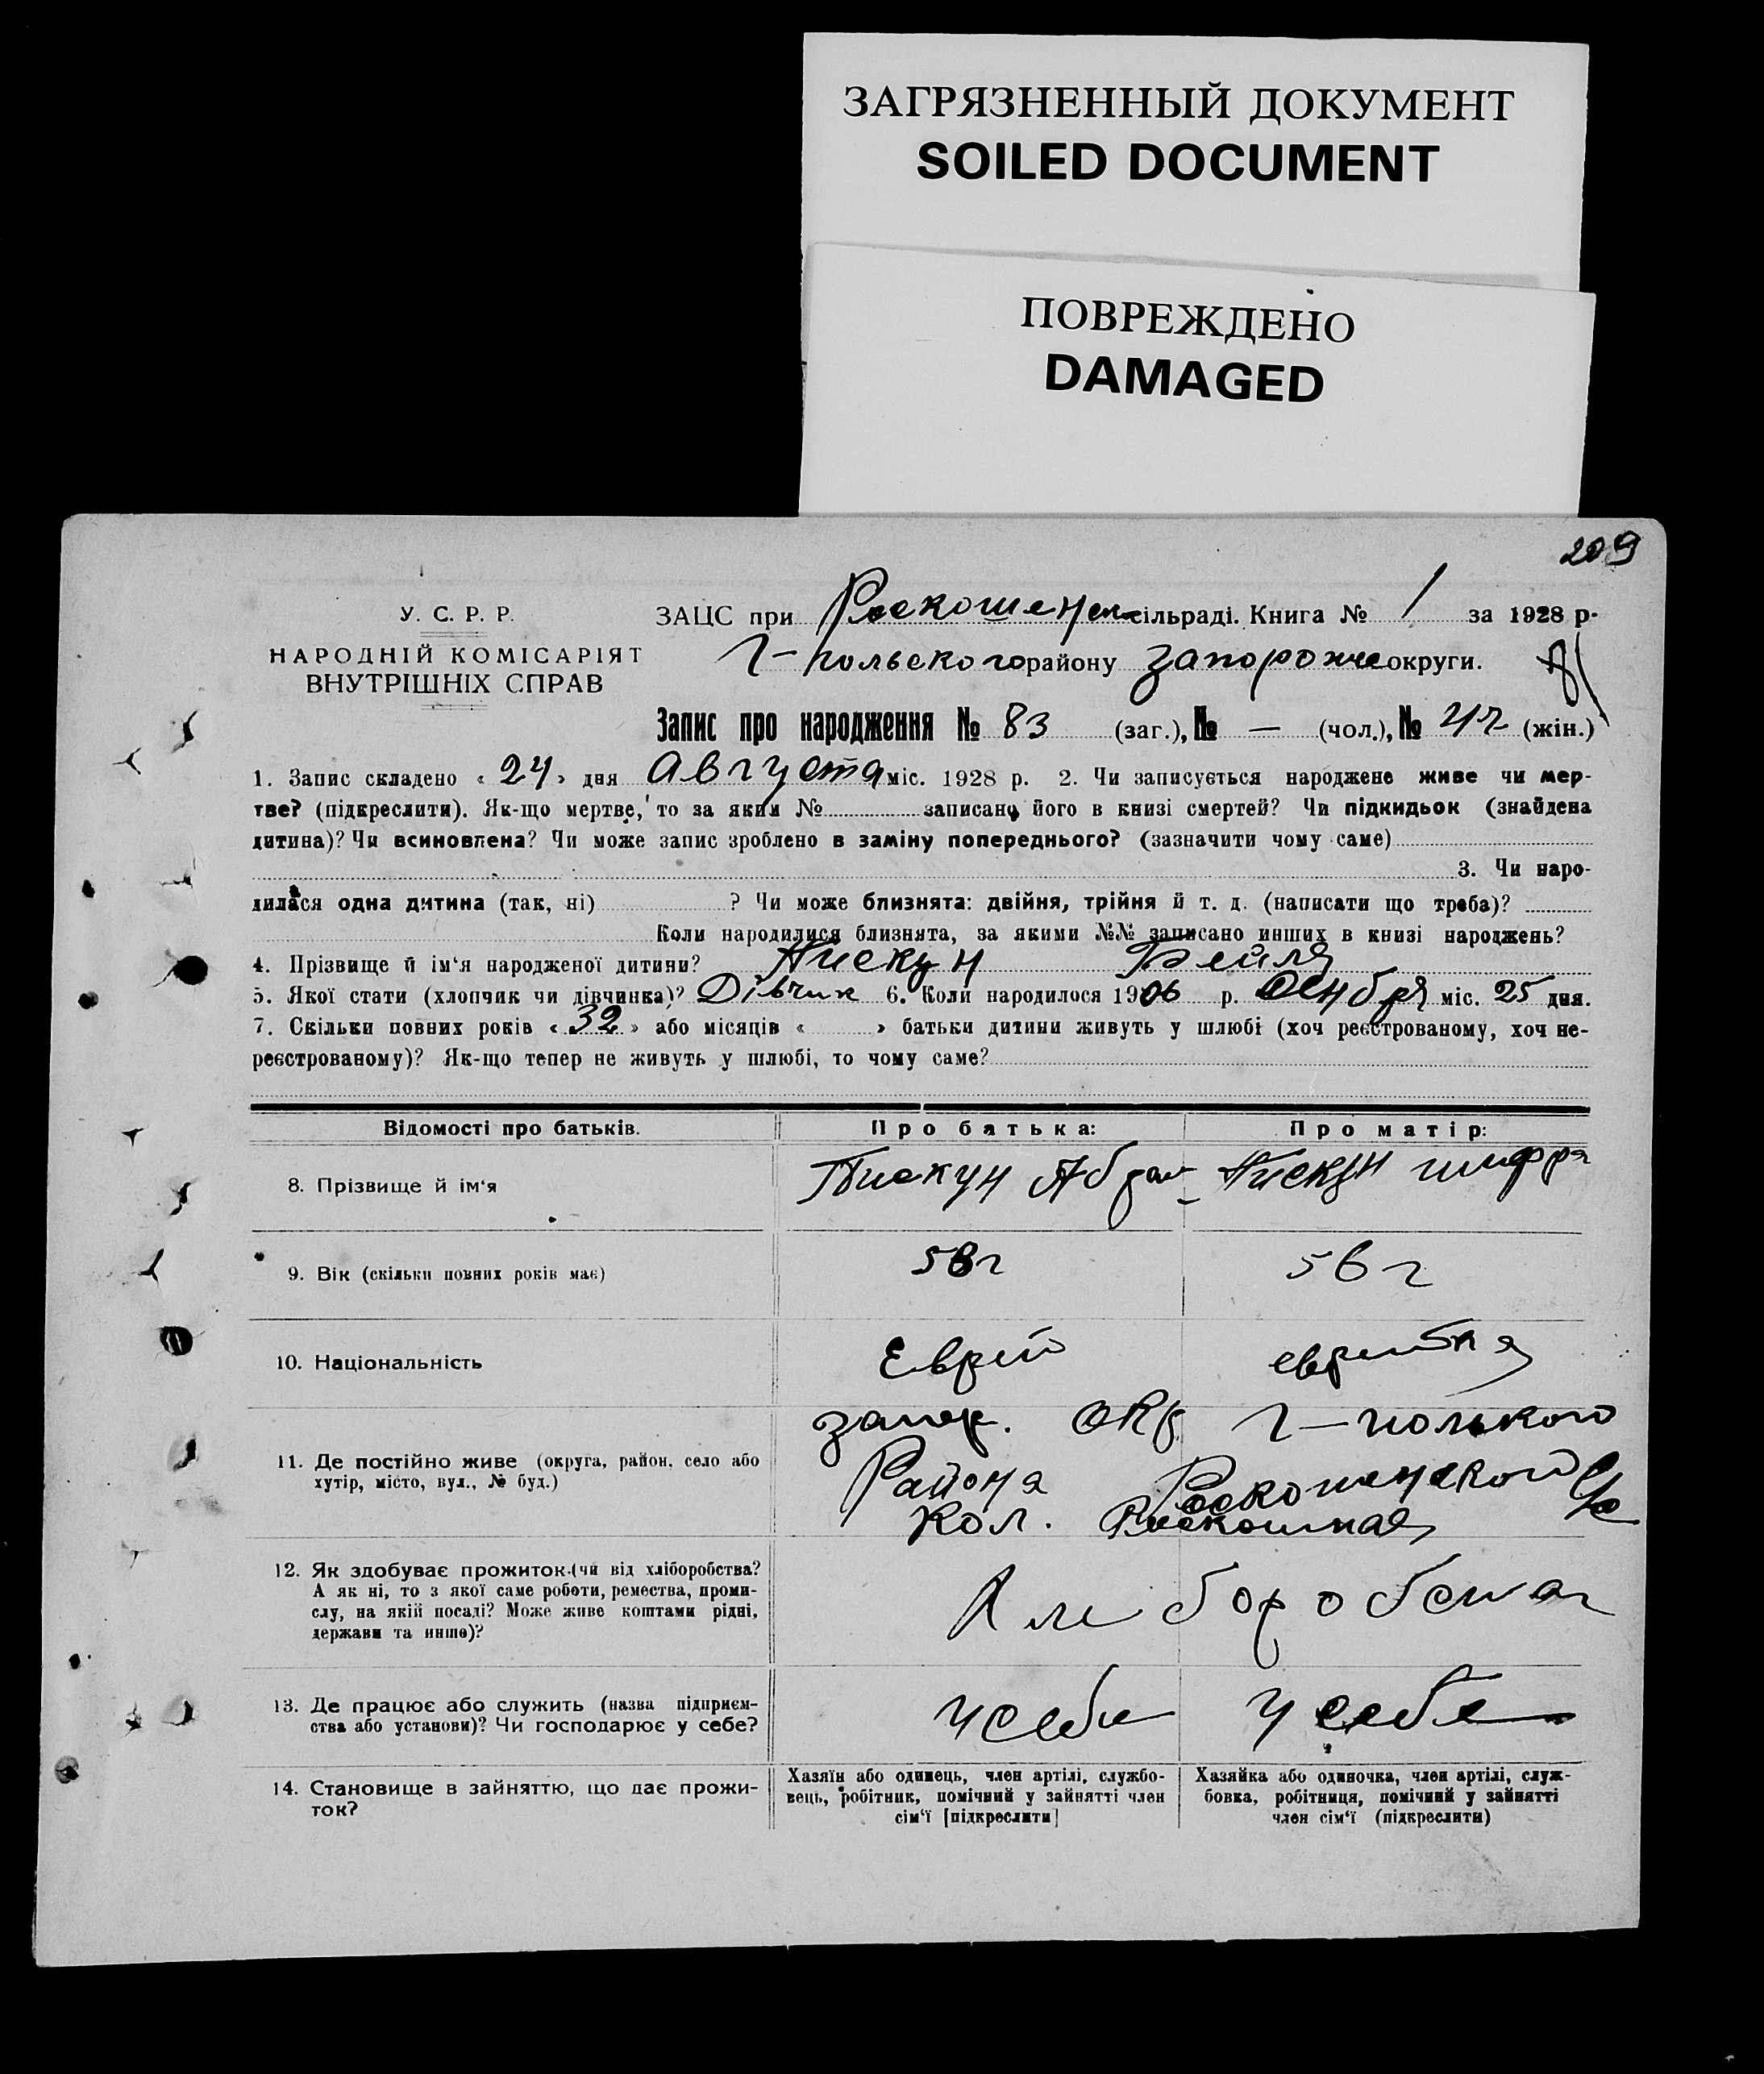 ЗАГРЯЗНЕННЫЙ ДОКУМЕНТ
SOILED DOCUMENT
ПОВРЕЖДЕНО
DAMAGED
209
У. С. Р. Р.
НАРОДНІЙ КОМІСАРІЯТ
ВНУТРІШНІХ СПРАВ
ЗАЦС при сільраді. Книга № 1 за 1928 р.
Г-польского району Запорожче округи.
Запис про народження № 83 (заг.), № — (чол.), № (жін.)
1. Запис складено « 24 » дня Августа міс. 1928 р. 2. Чи записується народжене живе чи мер-
тве? (підкреслити). Як-що мертве, то за яким № записано його в книзі смертей? Чи підкидьок (знайдена
дитина)? Чи всиновлена? Чи може запис зроблено в заміну попереднього? (зазначити чому саме)
3. Чи наро-
дилася одна дитина (так, ні) ? Чи може близнята: двійня, трійня й т. д. (написати що треба)?
Коли народилися близнята, за якими №№ записано инших в книзі народжень?
4. Прізвище й ім‘я народженої дитини? Пискун Бейля
5. Якої стати (хлопчик чи дівчинка)? Дівчик 6. Коли народилося 1906 р. міс. 25 дня.
7. Скільки повних років « 32 » або місяців « » батьки дитини живуть у шлюбі (хоч реєстрованому, хоч не-
реєстрованому)? Як-що тепер не живуть у шлюбі, то чому саме?
Відомості про батьків. Про батька: Про матір:
8. Прізвище й ім‘я Пискун Абрам Пискун шифра
9. Вік (скільки повних років має) 58 г 56 г
10. Національність Еврей еврейка
11. Де постійно живе (округа, район, село або
хутір, місто, вул., № буд.)
запор. окр. Г-полького
Района Роскошенской с/с
Кол. Роскошная
12. Як здобуває прожиток (чи від хліборобства?
А як ні, то з якої саме роботи, ремества, проми-
слу, на якій посаді? Може живе коштами рідні,
держави та инше)?
13. Де працює або служить (назва підприєм-
ства або установи)? Чи господарює у себе?
у себе у себе
14. Становище в зайняттю, що дає прожи-
ток?
Хазяїн або одинець, член артілі, службо-
вець, робітник, помічний у зайнятті член
сім‘ї [підкреслити]
Хазяйка або одиночка, член артілі, служ-
бовка, робітниця, помічний у зайнятті
член сім‘ї (підкреслити)